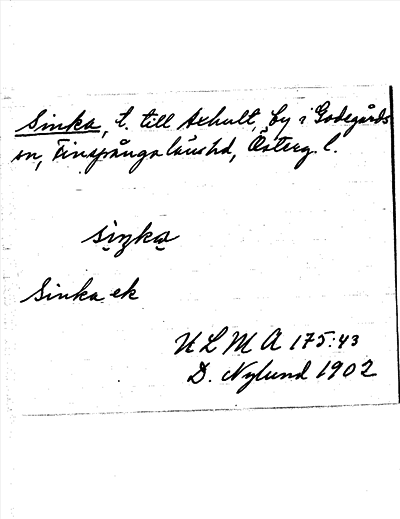 Sinka, t. till Axhult, by i Godegårds
sn, Finspånga läns hd, Österg. l.
sịŋka
Sinka ek
ULMA 175:43
D. Nylund 1902